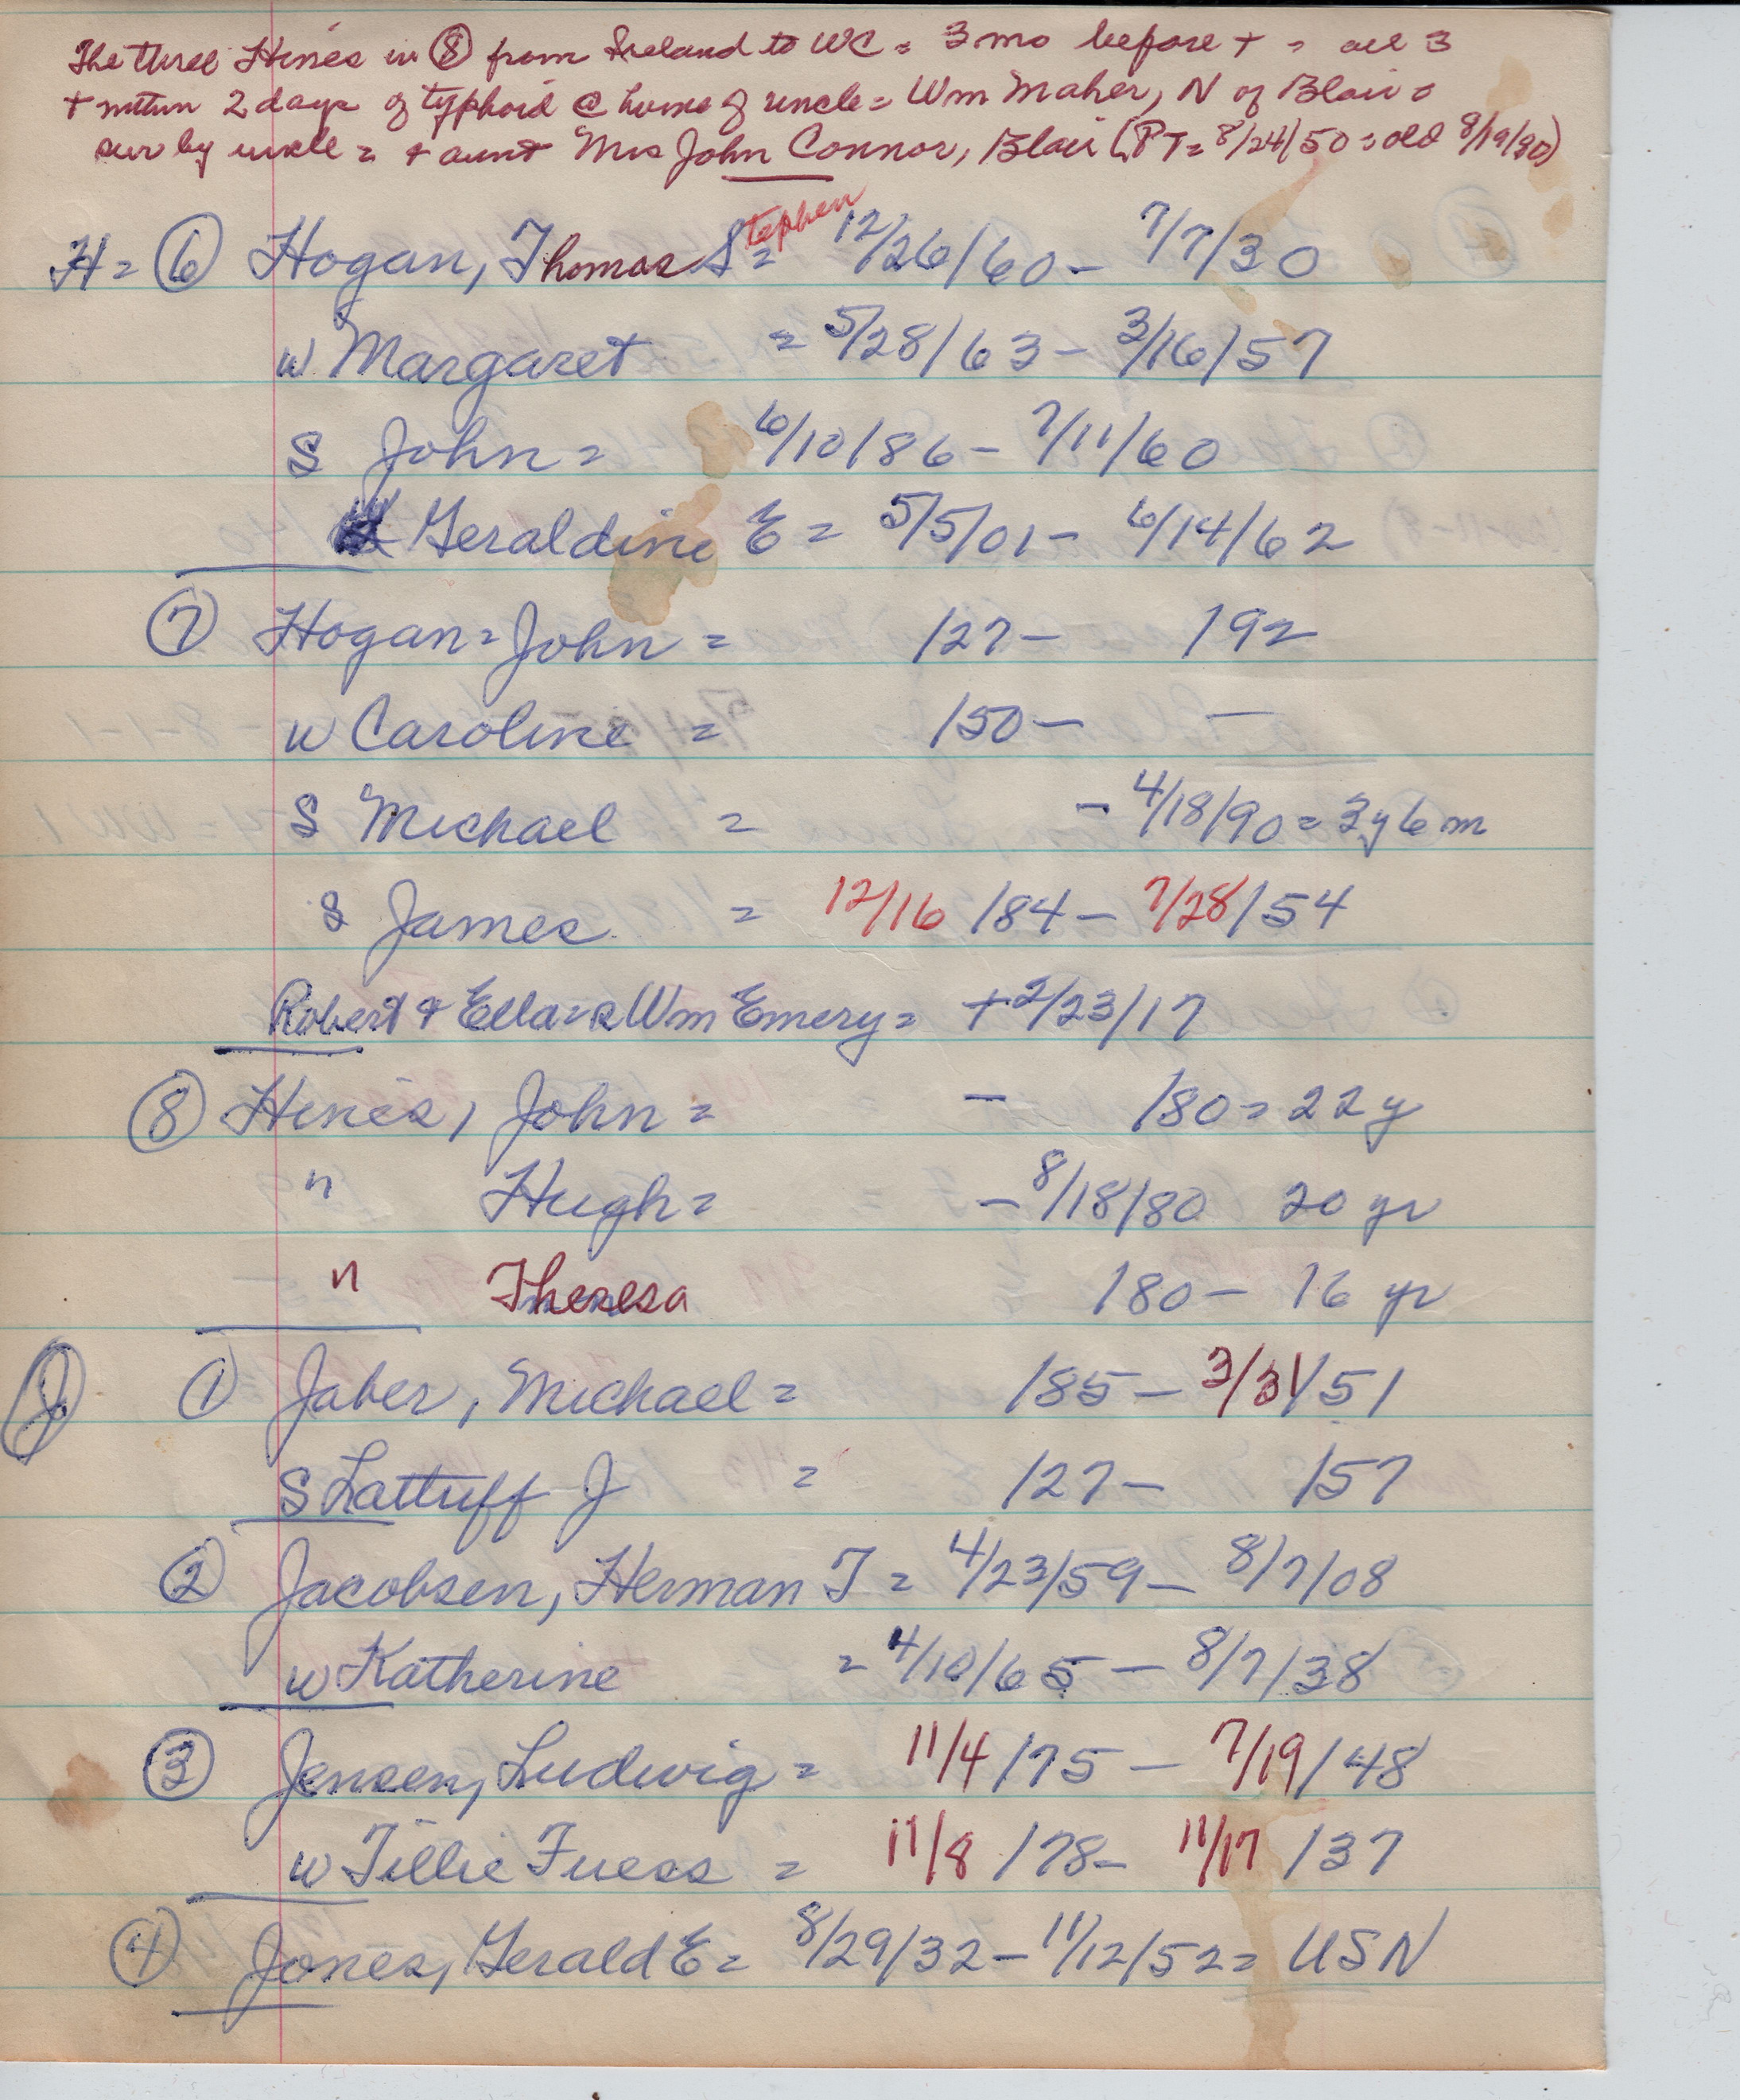 The three Hines in ⑧ from Ireland to WC = 3 mo before + = all 3
+ within 2 days of typhoid @ home of uncle = Wm Maher, N of Blair =
sur by uncle = + aunt Mrs John Connor, Blair (PT = 8/24/50 = old 8/19/80)
H = ⑥ Hogan, Thomas Stephen = 12/26/60 - 7/7/30
w Margaret = 5/28/63 - 3/16/57
S John = 6/10/86 - 7/11/60
Geraldine E = 5/5/01 - 6/14/62
⑦ Hogan = John = /27 - /92
w Caroline = /50 - -
S Michael = - 4/18/90 = 3y 6m
S James = 12/16/84 - 7/28/54
Robert + Ella = Wm Emery = + 2/23/17
⑧ Hines, John = - /80 = 22 y
" Hugh = - 8/18/80 20 yr
" Theresa /80 - 16 yr
J ① Jaber, Michael = /85 - 3/31/51
S Lattuff J = /27 - /57
② Jacobsen, Herman T = 4/23/59 - 8/7/08
w Katherine = 4/10/65 - 8/7/38
③ Jensen, Ludwig = 11/4/75 - 7/19/48
w Tillie Fuess = 11/8/78 - 11/17/37
④ Jones, Gerald E = 8/29/32 - 11/12/52 = USN